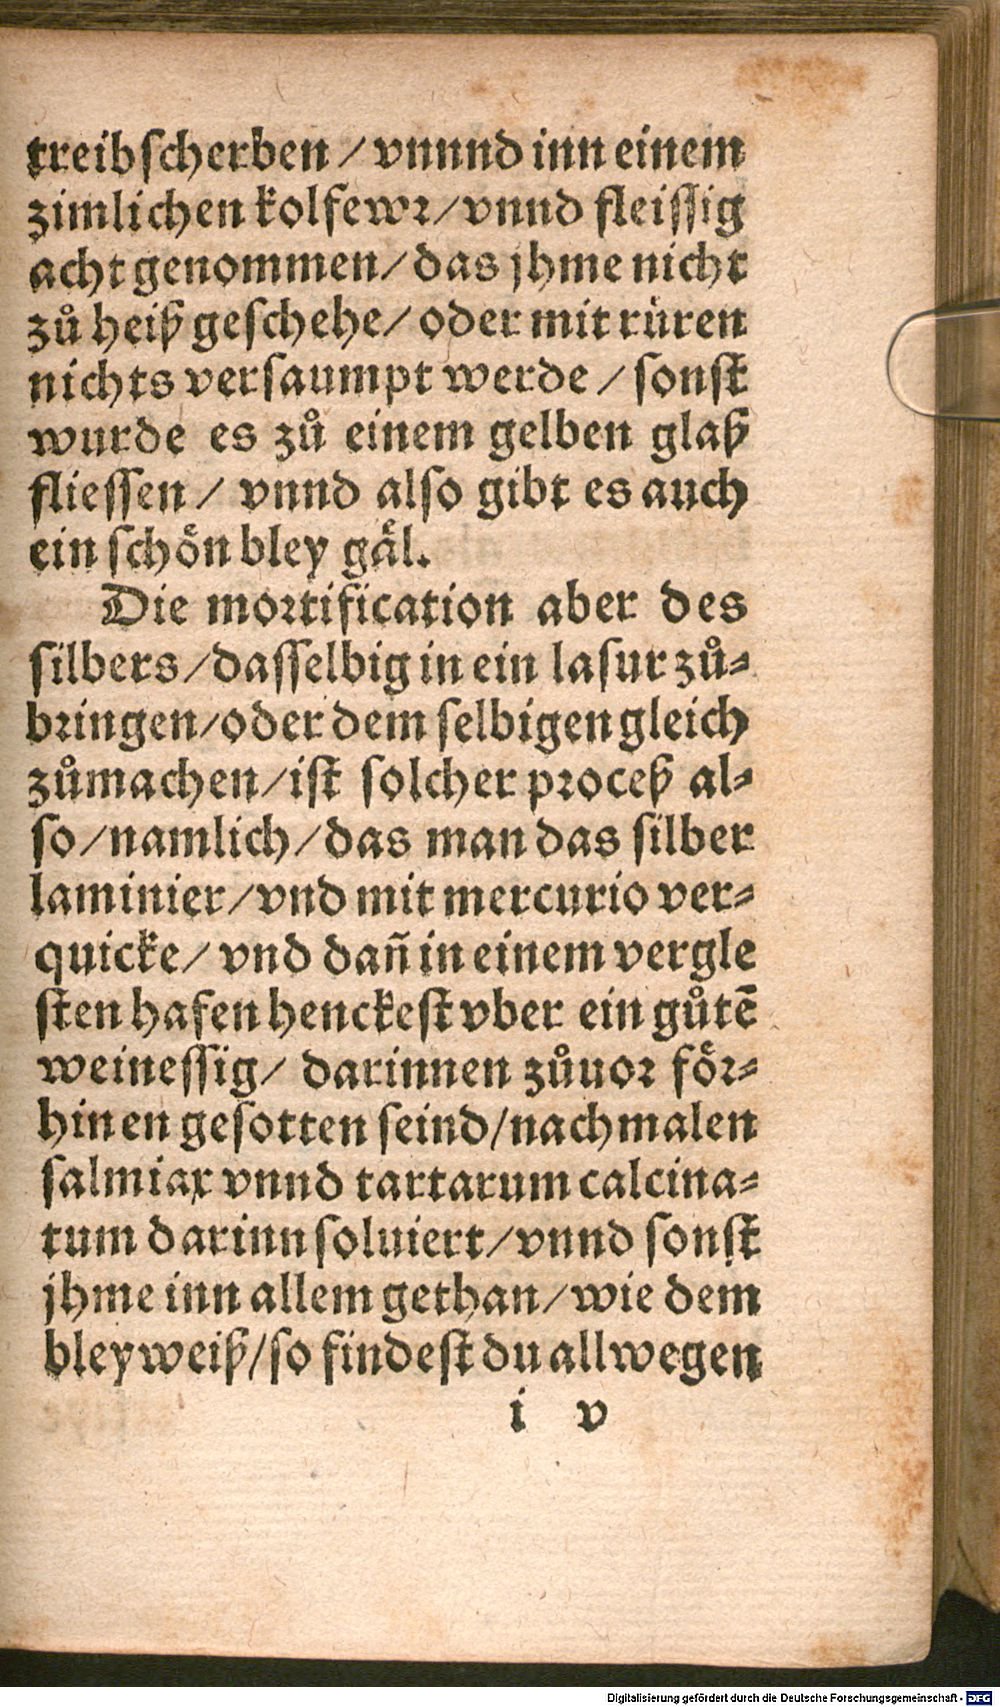 treibſcherben / vnnnd inn einem
zimlichen kolfewꝛ / vnnd fleiſſig
acht genommen / das jhme nicht
zů heiß geſchehe / oder mit rüren
nichts verſaumpt werde / ſonſt
wurde es zů einem gelben glaß
flieſſen / vnnd alſo gibt es auch
ein ſchön bley gäl.
Die moꝛtification aber des
ſilbers / daſſelbig in ein laſur zů⸗
bꝛingen / oder dem ſelbigen gleich
zůmachen / iſt ſolcher pꝛoceß al⸗
ſo / namlich / das man das ſilber
laminier / vnd mit mercurio ver⸗
quicke / vnd dañ in einem vergle
ſten hafen henckeſt vber ein gůtē
weineſſig / darinnen zůuoꝛ föꝛ⸗
hin en geſotten ſeind / nachmalen
ſalmiax vnnd tartarum calcina⸗
tum darinn ſoluiert / vnnd ſonſt
jhme inn allem gethan / wie dem
bleyweiß / ſo findeſt du allwegen
i v
Digitalisierung gefördert durch die Deutsche Forschungsgemeinschaft - DFG